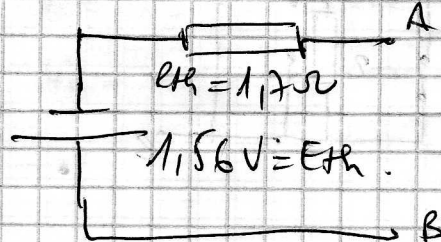 A
Rth = 1,7Ω
1,56 V = Eth.
B